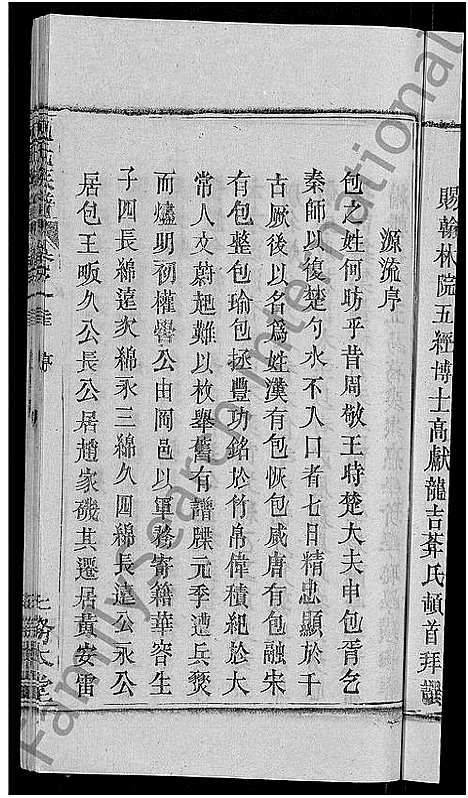 賜翰林院五經博士高獻龍吉莾氏頓首拜譔
源流序
包之姓何昉乎昔周敬王時楚大夫申包胥乞
秦師以復楚勺水不入口者七日精忠顯於千
古厥後以名爲姓漢有包恢包咸唐有包融宋
有包整包瑜包拯豐功銘於竹帛偉積紀於大
常人文蔚起難以枚舉舊有譜牒元季遭兵燹
而燼明初權嚳公由岡邑以軍務寄籍華容生
子四長綿遠次綿永三綿久四綿長遠公永公
居包王畈久公長公居趙家磯其遷居黃安雷
FamilySearch International